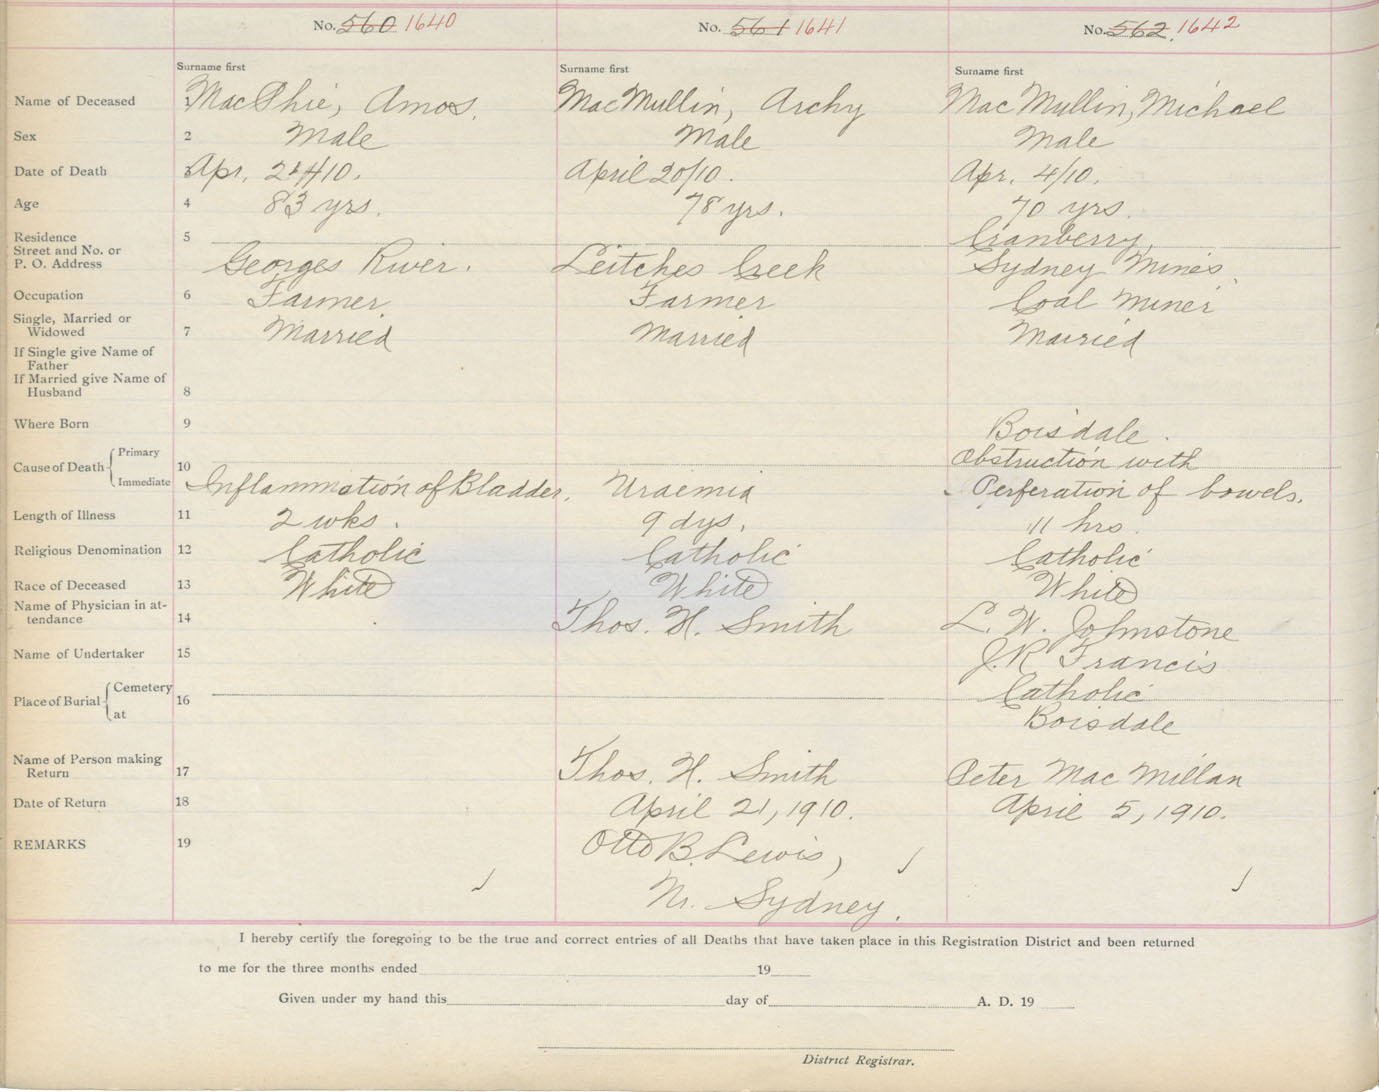 No. 560 1640 No. 561 1641 No. 562 1642
Surname first Surname first Surname first
Name of Deceased 1 MacPhie, Amos. MacMullin, Archy MacMullin, Michael
Sex 2 Male Male Male
Date of Death 3 Apr. /10. April 20/10. Apr. 4/10.
Age 4 83 yrs. 78 yrs. 70 yrs.
Residence 5 Cranberry,
Street and No. or
P. O. Address Georges River. Leitches Creek Sydney Mines
Occupation 6 Farmer Farmer Coal Miner
Single, Married or
Widowed 7 Married Married Married
If Single give Name of
Father
If Married give Name of
Husband 8
Where Born 9 Boisdale.
Cause of Death Primary 10 Obstruction with
Immediate Inflammation of Bladder. Uraemia Perferation of bowels.
Length of Illness 11 2 wks. 9 dys. 11 hrs.
Religious Denomination 12 Catholic Catholic Catholic
Race of Deceased 13 White White White
Name of Physician in at-
tendance 14 Thos. H. Smith L. W. Johnstone
Name of Undertaker 15 J.R Francis
Place of Burial Cemetery 16 Catholic
at Boisdale
Name of Person making
Return 17 Thos. H. Smith Peter MacMillan
Date of Return 18 April 21, 1910. April 5, 1910.
REMARKS 19 Otto B. Lewis,
Nr. Sydney.
I hereby certify the foregoing to be the true and correct entries of all Deaths that have taken place in this Registration District and been returned
to me for the three months ended 19
Given under my hand this day of A. D. 19
District Registrar.